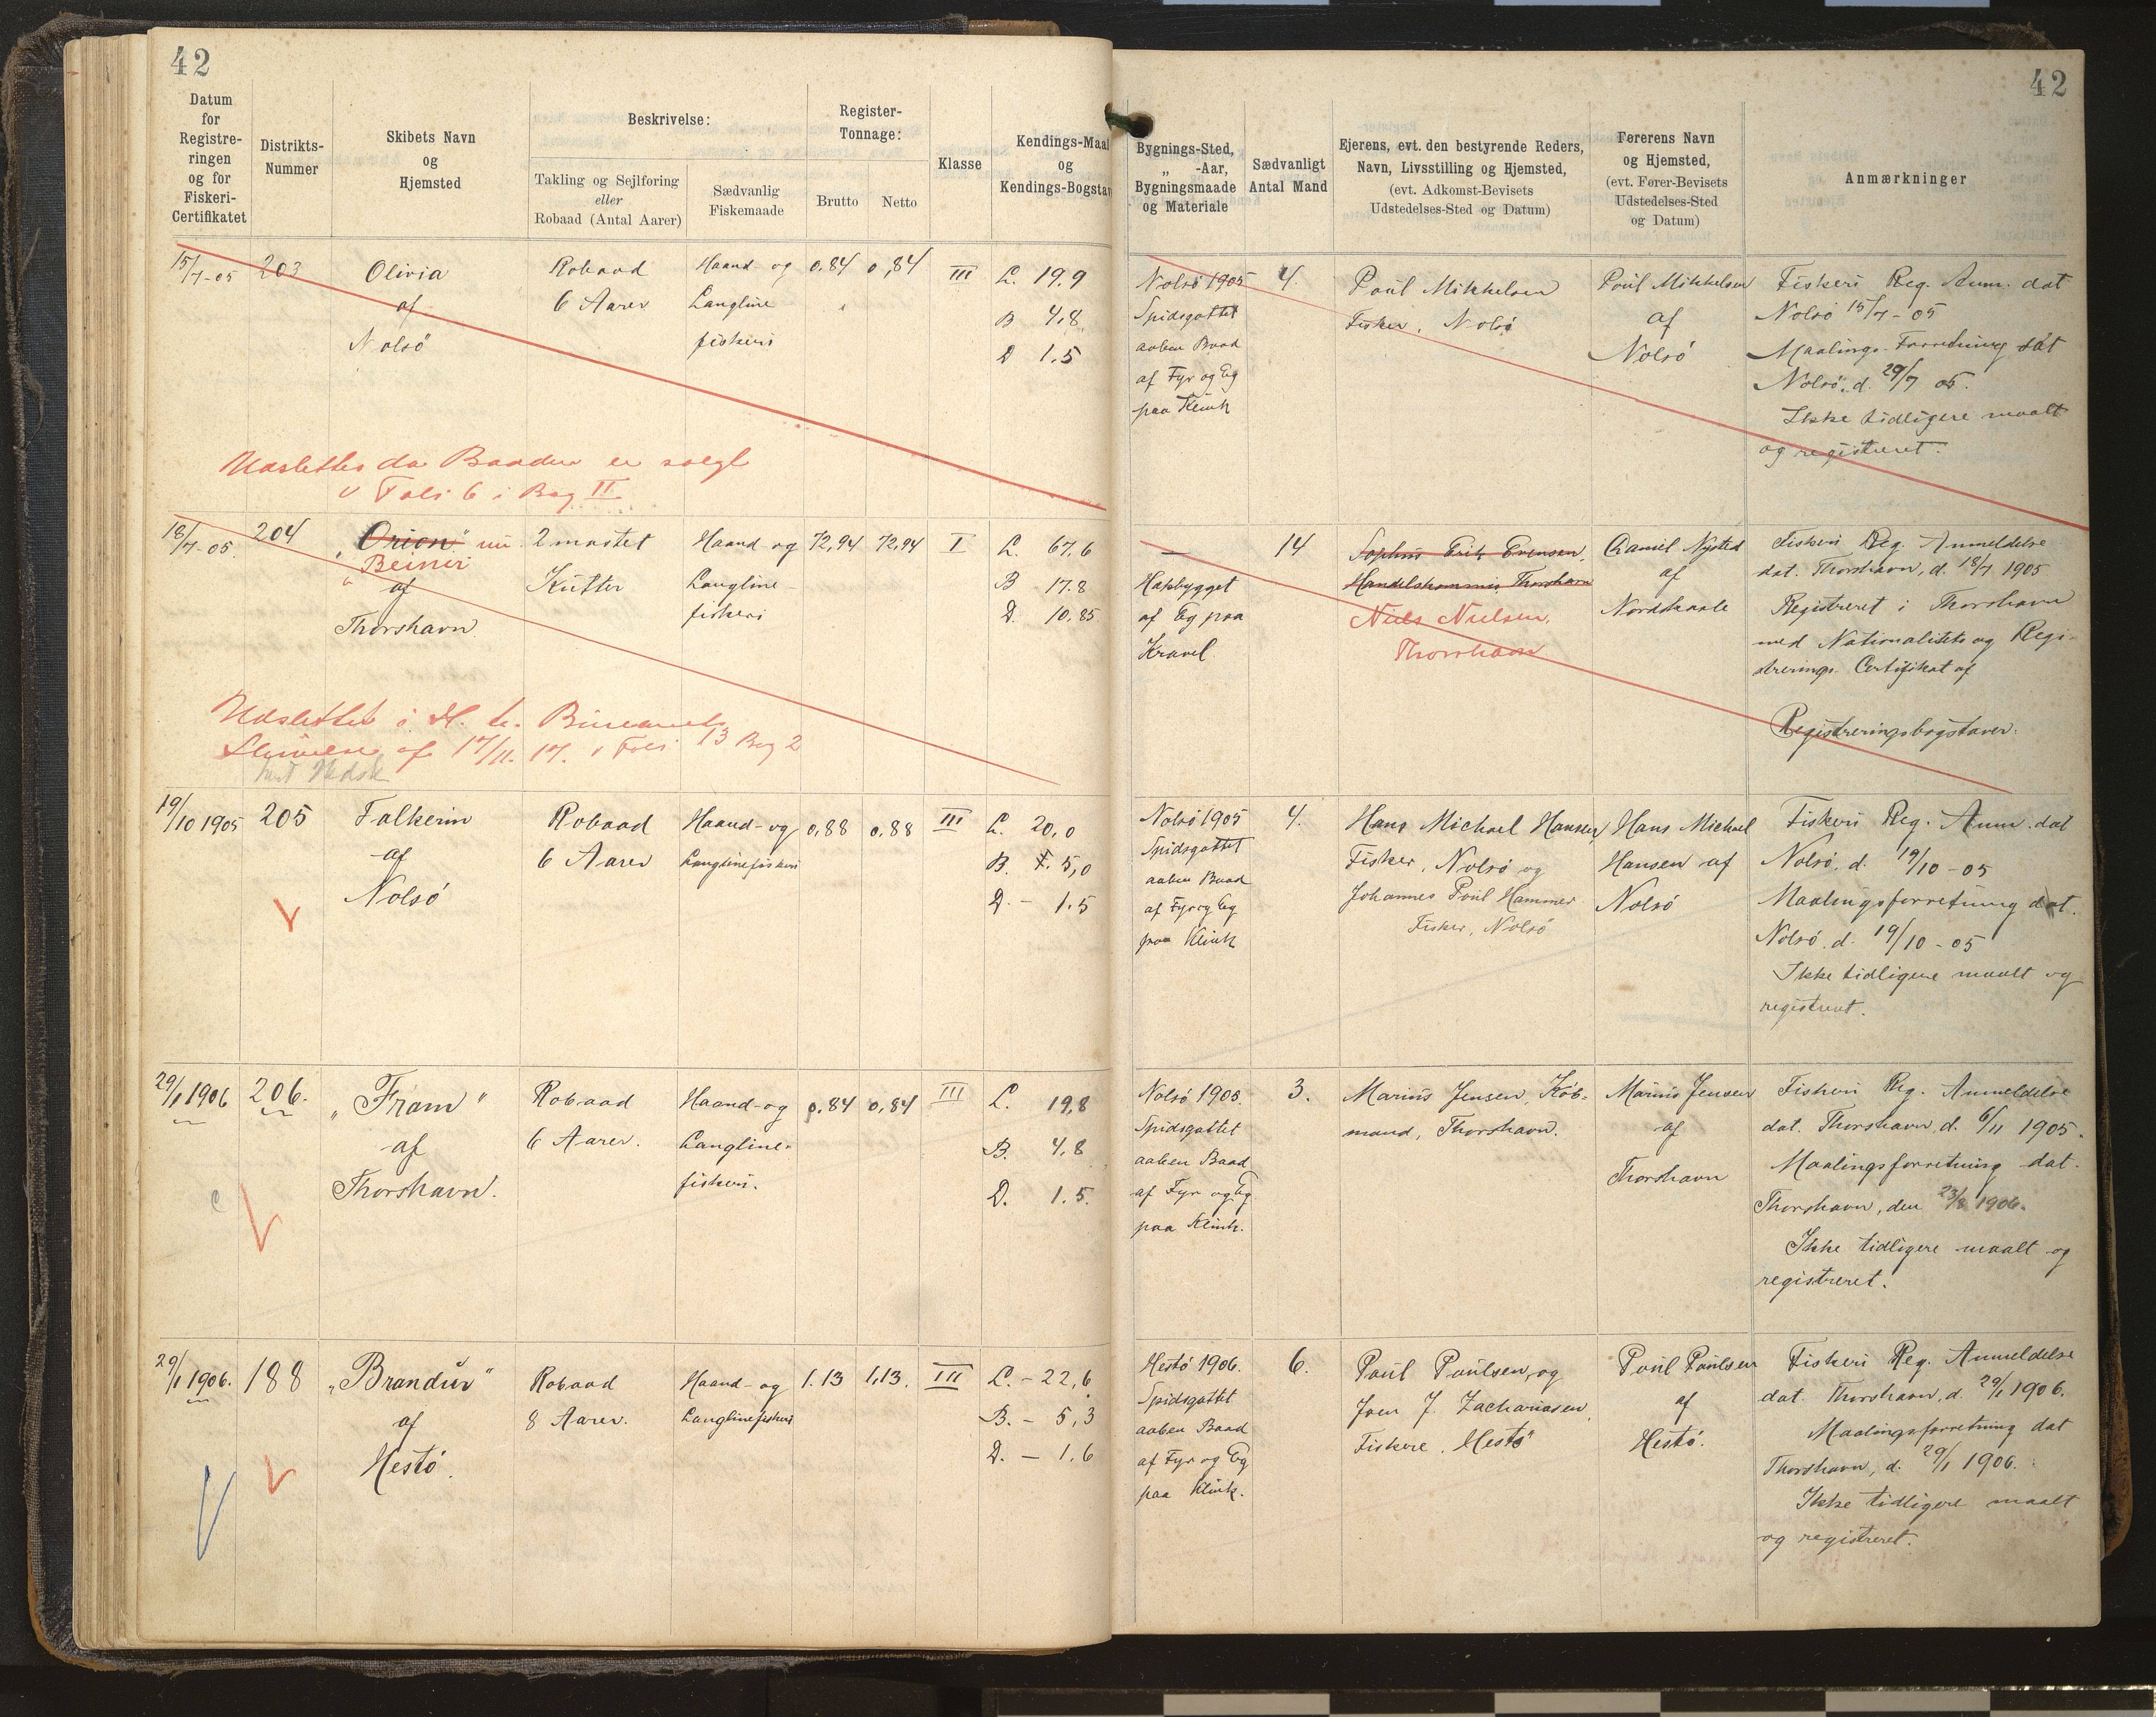 42
42
Datum
for
Registre-
ringen
og for
Fiskeri-
Certifikatet
Distrikts-
Nummer
Skibets Navn
og
Hjemsted
Beskrivelse:
Takling og Sejlføring
eller
Robaad (Antal Aarer)
Sædvanlig
Fiskemaade
Register-
Tonnage:
Brutto
Netto
Klasse
Kendings-Maal
og
Kendings-Bogstav
Bygnings-Sted,
„ -Aar,
Bygningsmaade
og Materiale
Sædvanligt
Antal Mand
Ejerens, evt. den bestyrende Reders,
Navn, Livsstilling og Hjemsted,
(evt. Adkomst-Bevisets
Udstedelses-Sted og Datum)
Førerens Navn
og Hjemsted,
(evt. Fører-Bevisets
Udstedelses-Sted
og Datum)
Anmærkninger
15/7-05
203
Olivia
af
Nolsö
Robaad
6 Aarer
Haand- og
Langline
fiskeri
0.84
0,84
III
L. 19.9
B 4,8
D 1.5
Nolsö 1905
Spidsgattet
aaben Baad
af Fyr og Eg
paa Klink
4.
Poul Mikkelsen
Fisker, Nolsö
Poul Mikkelsen
af
Nolsö
Fiskeri Reg. Anm. dat
Nolsö 15/7-05
Maalings-Forretning dat
Nolsö. d. 29/7 05.
Ikke tidligere maalt
og registreret.
Udslettes da Baaden er solgt
v Foli 6 i Bog II
18/7-05.
204
„Orion" nu
„Beinir
af
Thorshavn
2 mastet
Kutter
Haand-og
Langline-
fiskeri
72,94
72,94
I
L. 67.6
B 17.8
D. 10.85
—
Hækbygget
af Eg paa
Kravel
14
Sophus Erik Evensen,
Handelskommis, Thorshavn
Niels Nielsen,
Thorshavn
Daniel Nysted
af
Nordskaale
Fiskeri Reg. Anmeldelse
dat. Thorshavn, d. 18/7 1905
Registreret i Thorshavn
med Nationalitets og Regi-
strerings- Certifikat af
Registreringsbogstaver.
Udslettet i H. t. Bureauets
Skrivelse af 17/11. 17. v Foli 13 Bog 2
19/10 1905
205
Falkerin
af
Nolsö
Robaad
6 Aarer
Haand-og
Langlinefiskeri
0,88
0.88
III
L. 20,0
B. 5,0
D. - 1.5
Nolsö 1905
Spidsgattet
aaben Baad
af Fyr og Eg
paa Klink
4.
Hans Michael Hansen,
Fisker, Nolsö og
Johannes Poul Hammer
Fisker, Nolsö
Hans Michael
Hansen af
Nolsö
Fiskeri Reg. Anm. dat
Nolsö. d. 19/10-05
Maalingsforretning dat.
Nolsö. d. 19/10-05
Ikke tidligere maalt og
registreret.
29/1 1906
206.
„Fram"
af
Thorshavn.
Robaad
6 Aarer.
Haand-og
Langline-
fiskeri.
0.84
0,84
III
L. 19,8
B. 4,8
D. 1.5.
Nolsö 1905.
Spidsgattet
aaben Baad
af Fyr og Eg
paa Klink.
3.
Marius Jensen, Køb-
mand, Thorshavn.
Marius Jensen
af
Thorshavn
Fiskeri Reg. Anmeldelse
dat. Thorshavn, d. 6/11 1905.
Maalingsforretning dat.
Thorshavn, den 1906.
Ikke tidligere maalt og
registreret.
29/1 1906.
188
„Brandur"
af
Hestö.
Robaad
8 Aarer.
Haand-og
Langlinefiskeri
1.13
1,13.
III
L. - 22,6
B. - 5,3
D. - 1.6
Hestö 1906.
Spidsgattet
aaben Baad
af Fyr og Eg
paa Klink.
6.
Poul Poulsen, og
Joen J. Zachariasen,
Fiskere, Hestö
Poul Poulsen
af
Hestö.
Fiskeri Reg. Anmeldelse
dat. Thorshavn, d. 29/1 1906.
Maalingsforretning dat
Thorshavn, d. 29/1 1906.
Ikke tidligere maalt
og registreret.